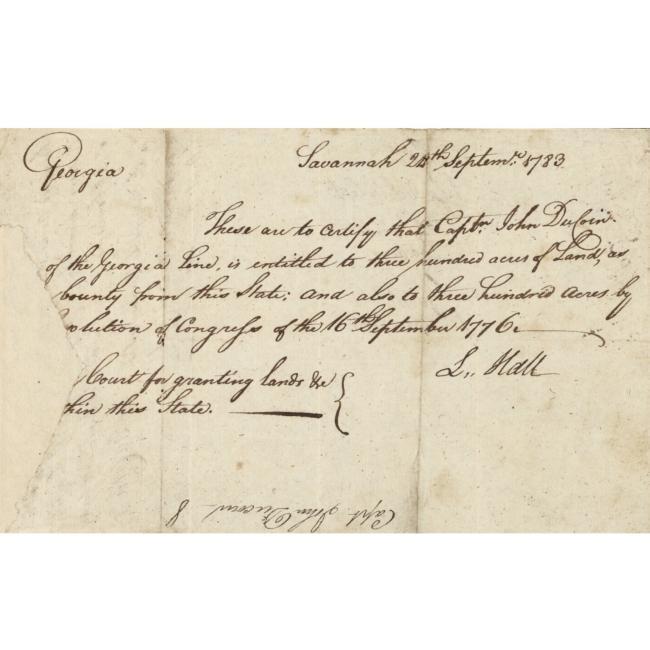 Georgia
Savannah 24th Septemr. 1783
These are to certify that Captn. John DuCoin
of the Georgia Line, is entitled to three hundred acres of Land, as
bounty from this State; and also to three hundred acres by
olution of Congress of the 16th September 1776.
L,, Hall
Court for granting lands &c
hin this State.
Capt John